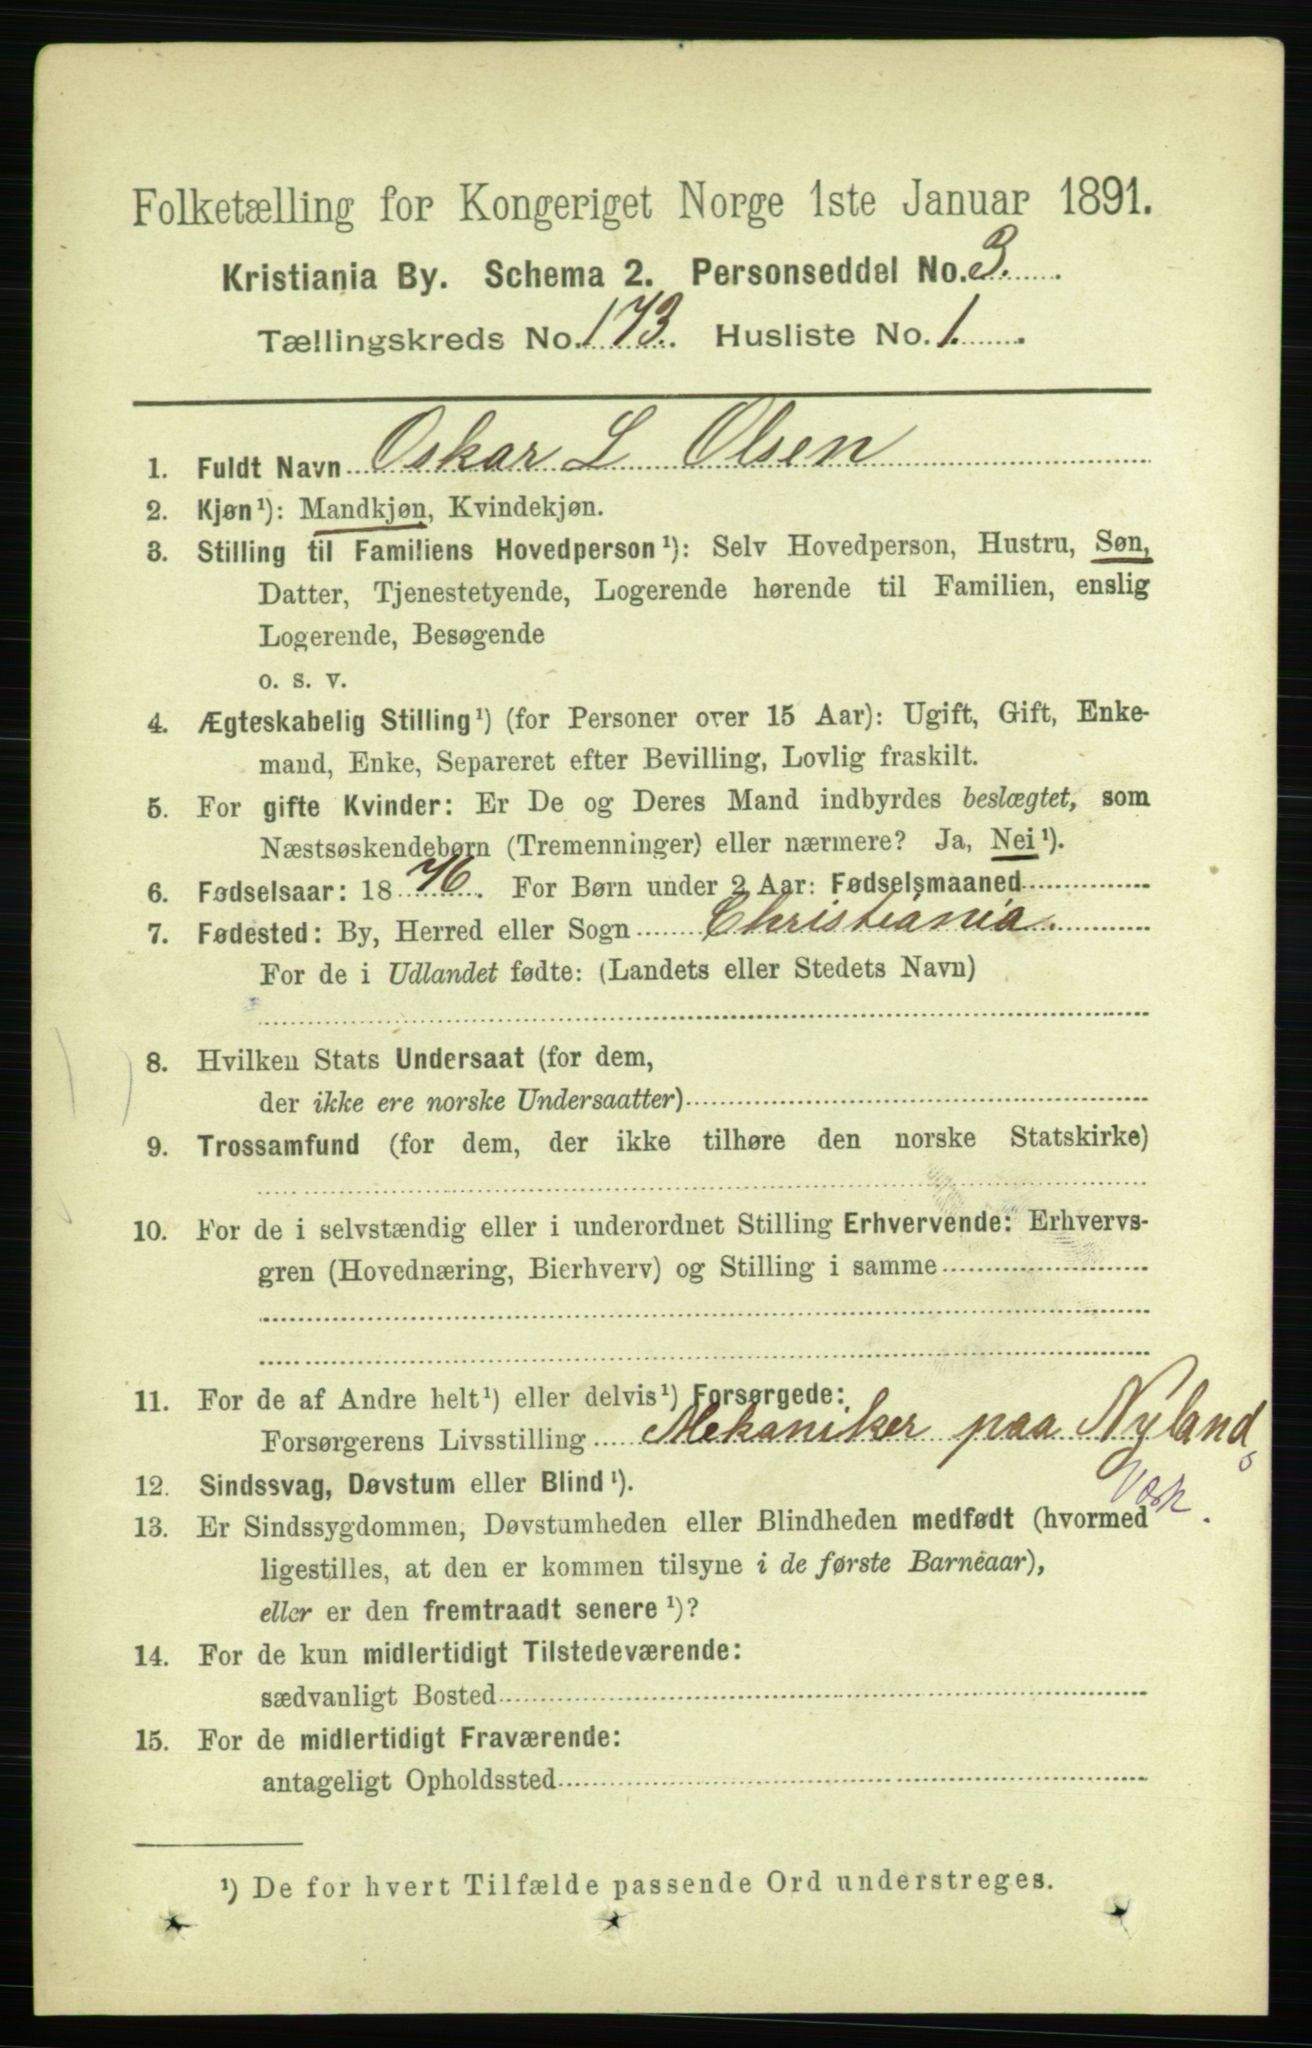 Folketælling for Kongeriget Norge 1ste Januar 1891.
Kristiania By. Schema 2. Personseddel No. 3.
Tællingskreds No. 173. Husliste No. 1.
1. Fuldt Navn Oskar L Olsen
2. Kjøn¹): Mandkjøn, Kvindekjøn.
3. Stilling til Familiens Hovedperson¹): Selv Hovedperson, Hustru, Søn,
Datter, Tjenestetyende, Logerende hørende til Familien, enslig
Logerende, Besøgende
o. s. v.
4. Ægteskabelig Stilling¹) (for Personer over 15 Aar): Ugift, Gift, Enke-
mand, Enke, Separeret efter Bevilling, Lovlig fraskilt.
5. For gifte Kvinder: Er De og Deres Mand indbyrdes beslægtet, som
Næstsøskendebørn (Tremenninger) eller nærmere? Ja, Nei¹).
6. Fødselsaar: 1876. For Børn under 2 Aar: Fødselsmaaned
7. Fødested: By, Herred eller Sogn Christiania.
For de i Udlandet fødte: (Landets eller Stedets Navn)
8. Hvilken Stats Undersaat (for dem,
der ikke ere norske Undersaatter)
9. Trossamfund (for dem, der ikke tilhøre den norske Statskirke)
10. For de i selvstændig eller i underordnet Stilling Erhvervende: Erhvervs-
gren (Hovednæring, Bierhverv) og Stilling i samme
11. For de af Andre helt¹) eller delvis¹) Forsørgede:
Forsørgerens Livsstilling Mekaniker paa Nylands
Værk.
12. Sindssvag, Døvstum eller Blind¹).
13. Er Sindssygdommen, Døvstumheden eller Blindheden medfødt (hvormed
ligestilles, at den er kommen tilsyne i de første Barneaar),
eller er den fremtraadt senere¹)?
14. For de kun midlertidigt Tilstedeværende:
sædvanligt Bosted
15. For de midlertidigt Fraværende:
antageligt Opholdssted
¹) De for hvert Tilfælde passende Ord understreges.